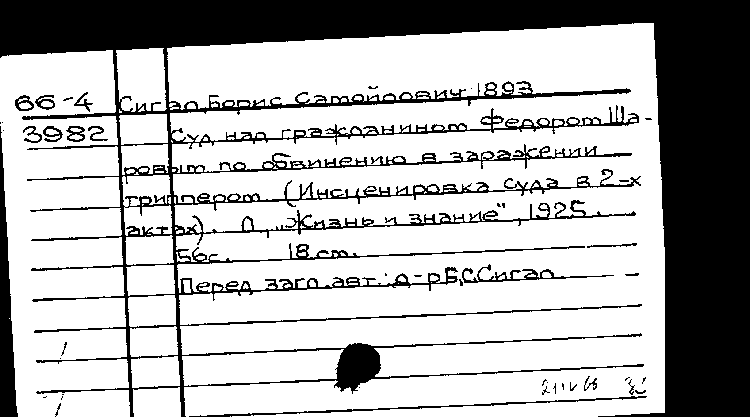 66-4 Сигал, Борис Самойлович, 1893
3982 Суд над гражданином Федором Ша-
ровым по обвинению в заражении
триппером (Инсценировка суда в 2-х
актах). Л, „Жизнь и знание", 1925.
56с. 18 см.
Перед загл. авт.: д-р Б.С.Сигал.